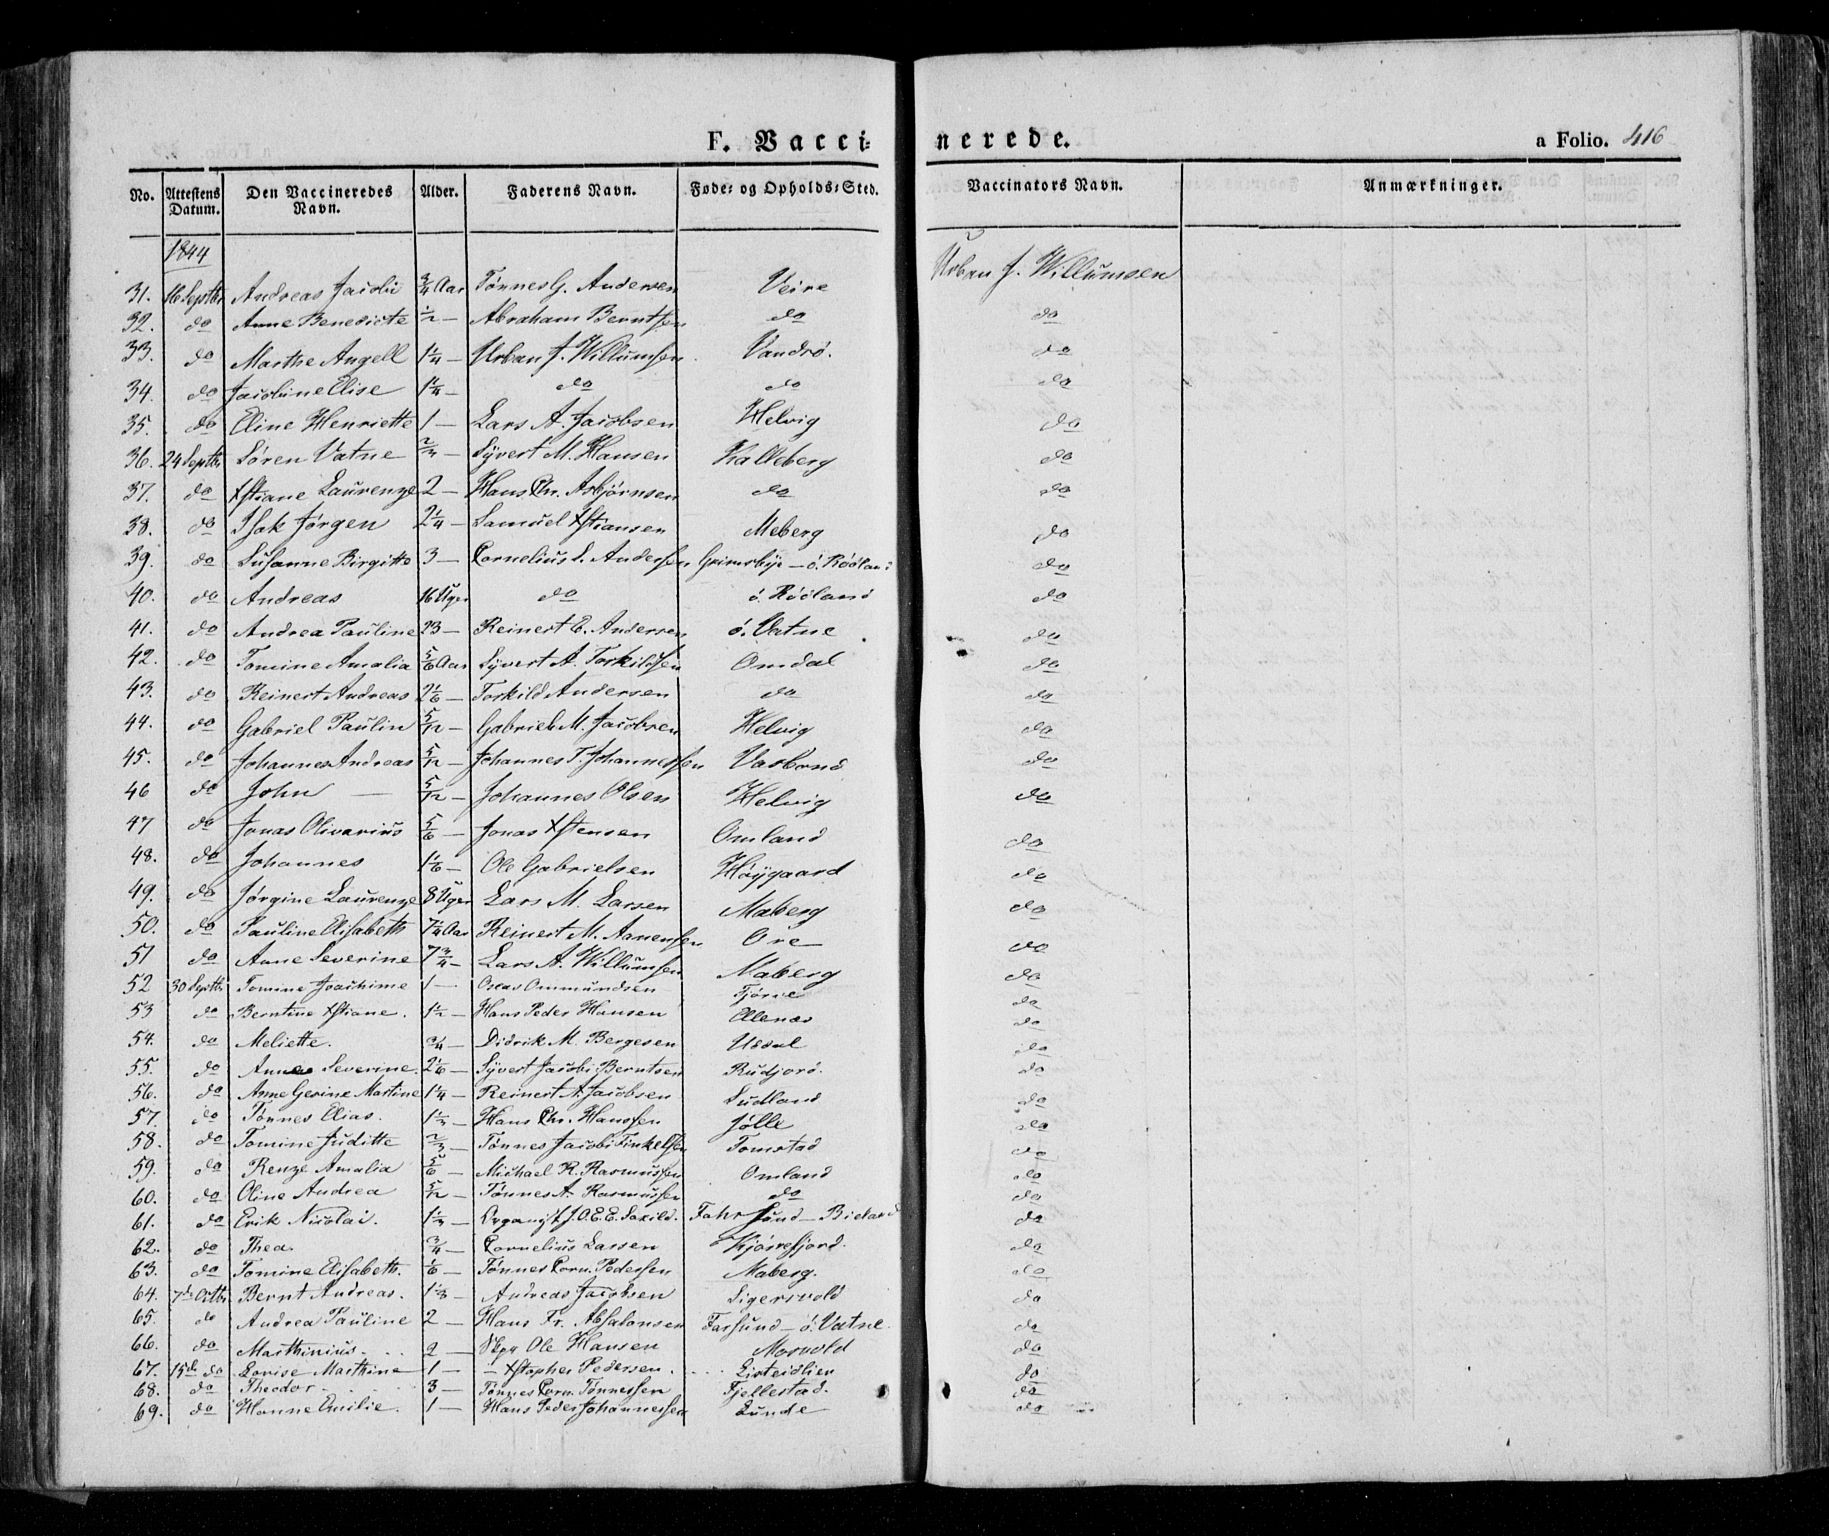 F. Vacci- nerede. a Folio. 416
No. Attestens Datum. Den Vaccineredes Navn. Alder. Faderens Navn. Føde- og Opholds-Sted. Vaccinators Navn. Anmærkninger.
1844
31. 16 Septbr Andreas Jacobi 3/4 Aar Tønnes G. Andersen Veire Urban J. Willumsen
32. do Anne Benedicte 1/2 — Abraham Berntsen do do
33. do Marthe Angell 1 1/4 — Urban J. Willumsen Vandrø. do
34. do Jacobine Elise 1 1/4 — do do do
35. do Eline Henriette 1 — Lars A. Jacobsen Helvig do
36. 24 Septbr Søren Vatne 2/3 — Syvert M. Hansen Kalleberg do
37. do Xstiane Laurenze 2 — Hans Chr. Asbjørnsen do do
38. do Isak Jørgen 2 1/4 — Samuel Xstiansen Meberg do
39. do Susanne Birgitte 3 — Cornelius S. Andersen Grimsbye — ö. Röölan: do
40. do Andreas 16 Uger do ö. Röoland do
41. do Andrea Pauline 23 — Reinert E. Andersen ö. Vatne do
42. do Tomine Amalia 5/6 Aar Syvert A. Torkildsen Omdal do
43. do Reinert Andreas 2 1/6 — Torkild Andersen do do
44. do Gabriel Paulin 5/12 — Gabriel M. Jacobsen Helvig do
45. do Johannes Andreas 5/12 — Johannes T. Johannessen Vasbond do
46 do John — 5/12 — Johannes Olsen Helvig do
47 do Jonas Olivarius 5/6 — Jonas Xstensen Omland do
48. do Johannes 1 1/6 — Ole Gabrielsen Høygaard do
49. do Jørgine Laurenze 8 Uger Lars M. Larsen Maberg do
50. do Pauline Elisabeth 7 1/4 Aar Reinert M. Aanensen Ore do
51 do Anne Severine 7 3/4 — Lars A. Willumsen Maberg do
52 30 Septbr Tomine Joachime 1 — Oseas Ommundsen Tjørve do
53 do Berntine Xstiane. 1 1/2 — Hans Peder Hansen Ollenæs do
54. do Meliette. 3/4 — Didrik M. Bergesen Uddal do
55. do Anne Severine. 2 1/6 — Syvert Jacobi Berntsen Rudjord. do
56. do Anne Gerine Martine 1 1/4 — Reinert A. Jacobsen Sudland do
57. do Tønnes Elias. 1 1/3 — Hans Chr. Hanssen Jölle do
58. do Tomine Juditte 2/3 — Tønnes Jacobi Finkelsen Tomstad do
59. do Renze Amalia 5/6 — Michael R. Rasmussen Omland do
60. do Oline Andrea 5/12 — Tønnes A. Rasmussen do do
61. do Erik Nicolai. 1 1/3 — Organist J. O. E. E. Saxild. Fahrsund — Bieland do
62. do Thea 3/4 — Cornelius Lassen Kjörrefjord. do
63. do Tomine Elisabeth. 1/6 — Tønnes Corn. Pedersen Maberg. do
64. 7de Octbr Bernt Andreas. 1 1/3 — Andreas Jacobsen Sigersvold do
65. do Andrea Pauline 2 — Hans Fr. Absalonsen Farsund — ö. Vatne do
66. do Marthinius. 2 — Skpr Ole Hansen Mosvold do
67. 15de do Lovise Marthine 1 — — Xstopher Pedersen. Listeidlien do
68. do Theodor 3 — Tønnes Corn. Tønnessen Fjellestad. do
69. do Hanne Emilie. 1 — Hans Peder Johannessen Lunde do